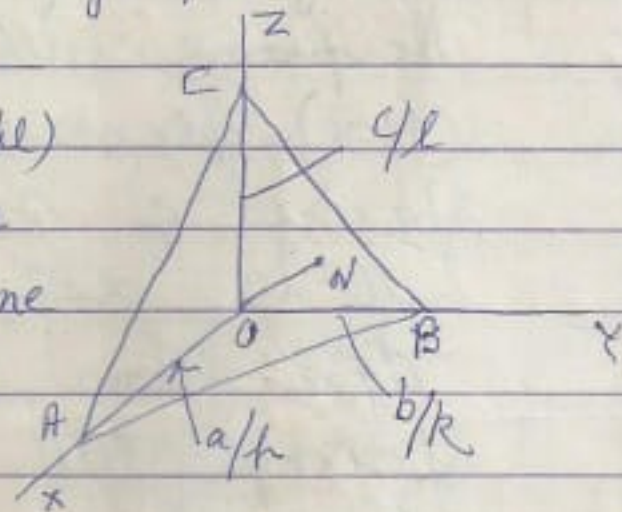 Z
C
kl)
c/l
N
ne
O
B
Y
A
a/h
b/k
x